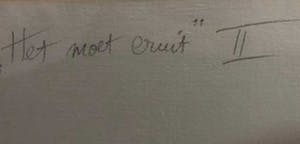 "Het moet eruit" II